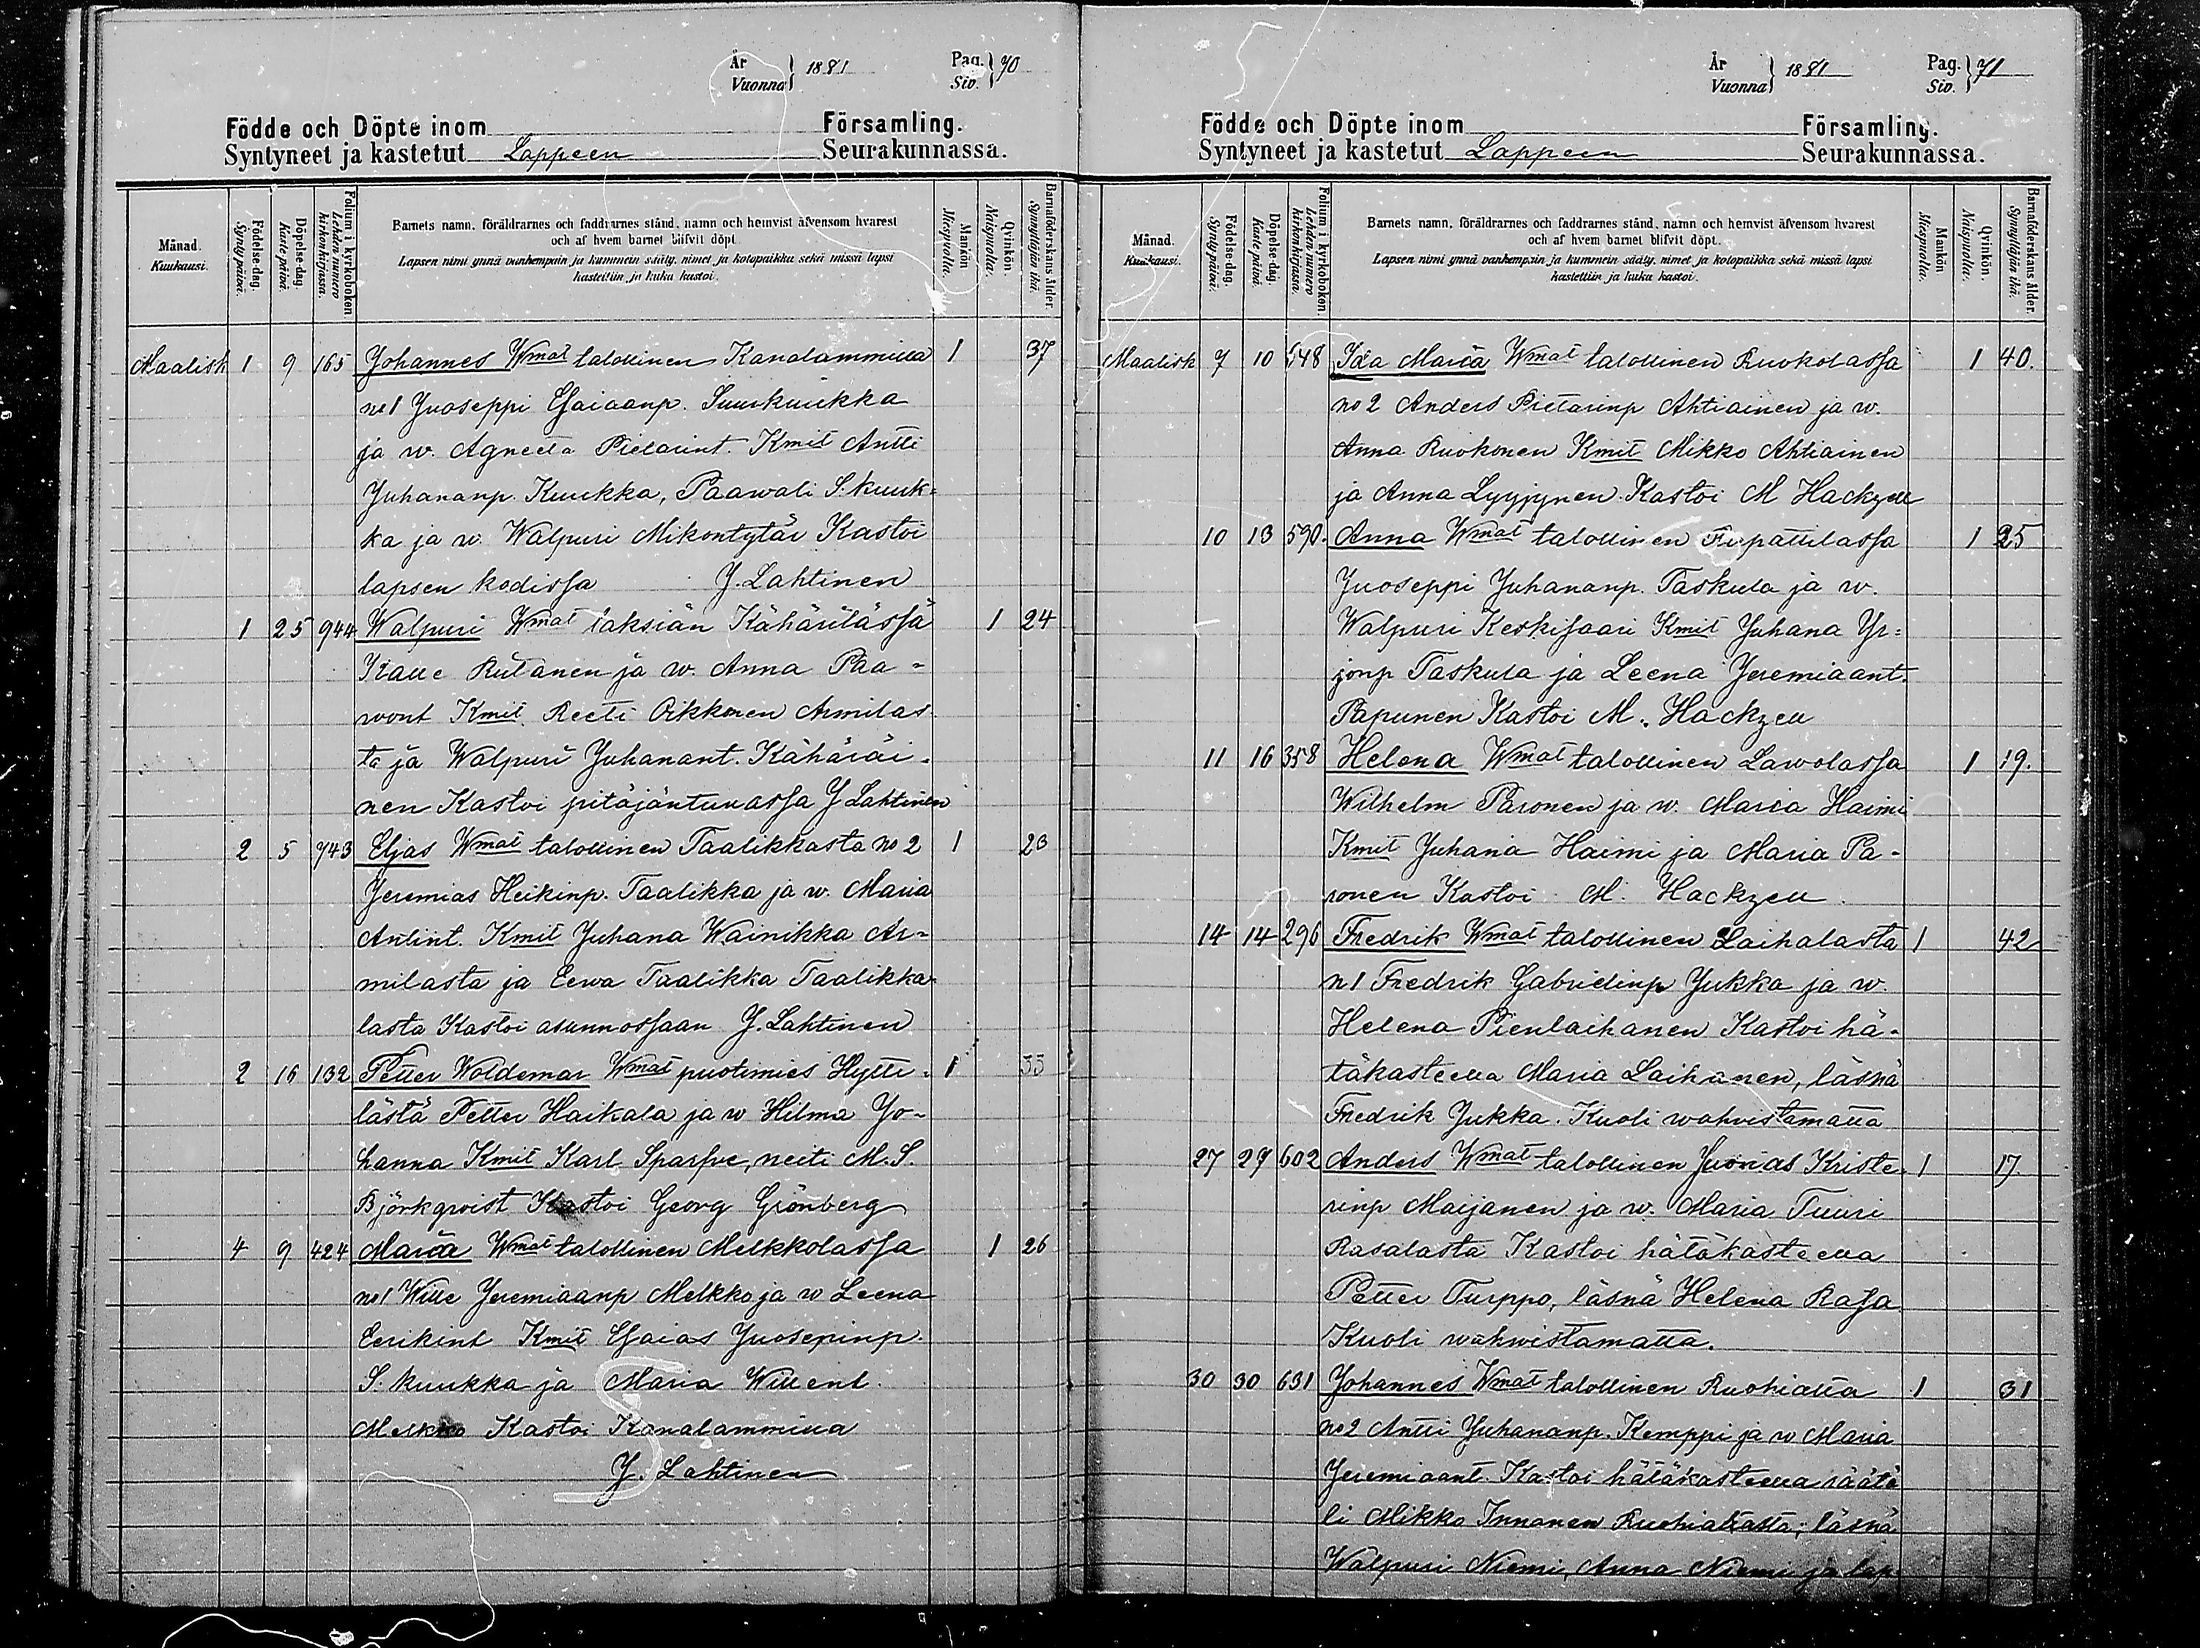 År
Vuonna } 1881
Pag.
Siv. } 70
Födde och Döpte inom Församling.
Syntyneet ja kastetut Lappeen Seurakunnassa.
Månad.
Kuukausi.
Födelse-dag.
Synty päivä.
Döpelse-dag.
Kaste päivä.
Folium i kyrkoboken
Lehden numero
kirkonkirjassa.
Barnets namn, föräldrarnes och faddrarnes stånd, namn och hemvist äfvensom hvarest
och af hvem barnet blifvit döpt.
Lapsen nimi ynnä vanhempain ja kummein sääty, nimet ja kotopaikka sekä missä lapsi
kastettiin ja kuka kastoi.
Mankön
Miespuolia.
Qvinkön.
Naispuolia.
Barnaföderskans ålder.
Synnyttäjän ikä.
Maalisk 1 9 165 Johannes Wmat talollinen Kanalammilla 1 37
no1 Juoseppi Esaiaanp. Suurkuukka
ja w. Agneeta Pietarint. Kmit Antti
Juhananp. Kuukka, Paawali S. kuuk-
ka ja w. Walpuri Mikontytär Kastoi
lapsen kodissa J. Lahtinen
1 25 944 Walpuri Wmat Kähärilässä 1 24
Kalle Rutanen ja w. Anna Paa-
wont Kmit Reeti Oikkonen Armilas
ta ja Walpuri Juhanant. Kähäräi-
nen Kastoi pitäjäntuvassa J Lahtinen
2 5 743 Eljas Wmat talollinen Taalikkasta no 2 1 23
Jeremias Heikinp. Taalikka ja w. Maria
Antint. Kmit Juhana Wainikka Ar-
milasta ja Eewa Taalikka Taalikka-
lasta Kastoi asunnossaan J. Lahtinen
2 16 132 Petter Woldemar Wmat puotimies Hytti- 1 33
lästä Petter Haikala ja w Hilma Jo-
hanna Kmit Karl Sparfve, neiti M. S.
Björkqvist Kastoi Georg Grönberg
4 9 424 Maria Wmat talollinen Melkkolassa 1 26
no1 Wille Jeremiaanp Melkko ja w Leena
Eerikint Kmit Esaias Juosepinp
S. kuukka ja Maria Willent.
Melkko Kastoi Kanalammilla
J. Lahtinen
År
Vuonna } 1881
Pag.
Siv. } 71
Födde och Döpte inom Församling.
Syntyneet ja kastetut Lappeen Seurakunnassa.
Månad.
Kuukausi.
Födelse-dag.
Synty päivä.
Döpelse-dag.
Kaste päivä.
Folium i kyrkoboken.
Lehden numero
kirkonkirjassa.
Barnets namn, föräldrarnes och faddrarnes stånd, namn och hemvist äfvensom hvarest
och af hvem barnet blifvit döpt.
Lapsen nimi ynnä vanhempain ja kummein sääty, nimet ja kotopaikka sekä missä lapsi
kastettiin ja kuka kastoi.
Mankön
Miespuolia.
Qvinkön.
Naispuolia.
Barnaföderskans ålder.
Synnyttäjän ikä.
Maalisk 7 10 548 Ida Maria Wmat talollinen Ruokolassa 1 40.
no 2 Anders Pietarinp Ahtiainen ja w.
Anna Ruokonen Kmit Mikko Ahtiainen
ja Anna Lyyjynen Kastoi M Hackzell
10 13 590. Anna Wmat talollinen 1 25
Juoseppi Juhananp. Taskula ja w.
Walpuri Keskisaari Kmit Juhana Yr-
jonp Taskula ja Leena Jeremiaant.
Papunen Kastoi M. Hackzell
11 16 358 Helena Wmat talollinen Lawolassa 1 19.
Wilhelm Paronen ja w. Maria Haimi
Kmit Juhana Haimi ja Maria Pa-
ronen Kastoi M. Hackzell
14 14 296 Fredrik Wmat talollinen Laihalasta 1 42
n1 Fredrik Gabrielinp Jukka ja w.
Helena Pienlaihanen Kastoi hä-
täkasteella Maria Laihanen, läsnä
Fredrik Jukka. Kuoli wahvistamatta
27 29 602 Anders Wmat talollinen Junias Kriste- 1 17
rinp Maijanen ja w. Maria Tuuri
Rasalasta Kastoi hätäkasteella
Petter Turppo, läsnä Helena Rasa
Kuoli wahwistamatta.
30 30 631 Johannes Wmat talollinen Ruohialla 1 31
no2 Antti Juhananp. Kemppi ja w Maria
Jeremiaant. Kastoi hätäkasteella räätä
li Mikko Innanen läsnä
Walpuri Niemi, Anna Niemi ja lap